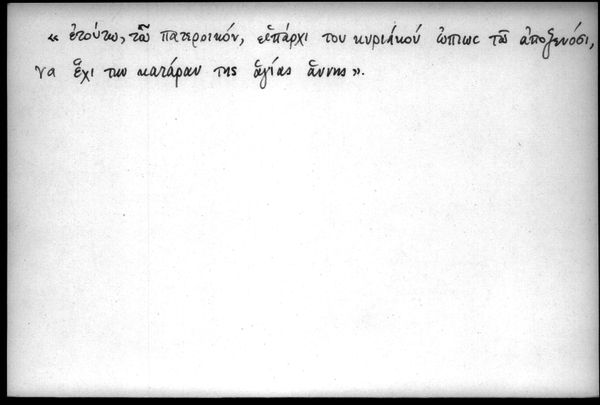 « ἐτούτω, τῶ πατεροικόν, εἶπάρχι του κυριλκού ὥπιως τῶ ἀποξενόσι,
να ἔχι την κατάραν της ἁγίας ἄννης ».